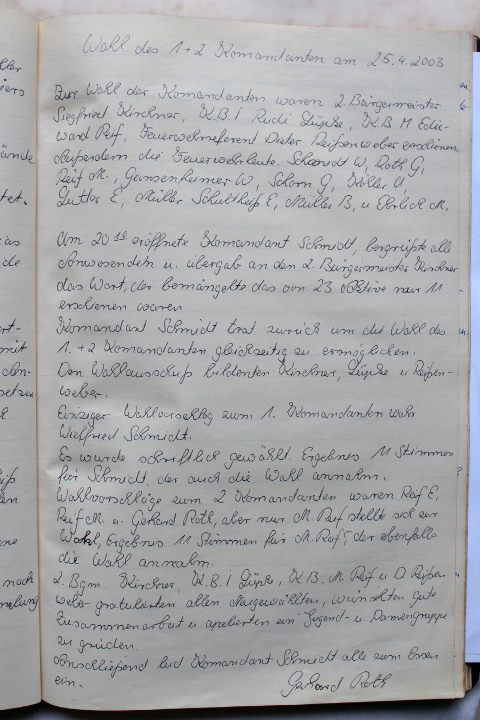 Wahl des 1+2 Komandanten am 25.4.2003
Zur Wahl der Komandanten waren 2. Bürgermeister
Siegfried Kirchner, K.B.I Rudi Lüpke, K.B M Edu-
ward Reif, Feuerwehrreferent Dieter Reißenweber erschienen
Außerdem die Feuerwehrleute, Schmidt W, Roth G,
Reif M., Gunsenheimer W, Schorn G, Köller U,
Lutter E, Müller Schultheiß E, Müller B, u Ehrlich M.
Um 20 10 eröffnete Komandant Schmidt, begrüßte alle
Anwesendeln u. übergab an den 2. Bürgermeister Kirchner
das Wort, der bemängelte das von 23 Aktive nur 11
erschienen waren
Komandant Schmidt trat zurück um die Wahl des
1. +2 Komandanten gleichzeitig zu ermöglichen.
Den Wahlausschuß bildenten Kirchner, Lüpke u Reißen-
weber.
Einziger Wahlvorschlag zum 1. Komandanten wahr
Wielfried Schmidt.
Es wurde schriftlich gewählt. Ergebnis 11 Stimmen
für Schmidt, der auch die Wahl annahm.
Wahlvorschläge zum 2 Komandanten waren Reif E,
Reif M. u. Gerhard Roth, aber nur M. Reif stellte sich zur
Wahl, Ergebnis 11 Stimmen für M. Reif, der ebenfalls
die Wahl annahm.
2. Bgm. Kirchner, K.B.I Lüpke, K.B.M Reif u D. Reißen
weber gratulierten allen Neugewählten, wünschten gute
Zusammenarbeit u apelierten ein Jugend- u. Damengruppe
zu grüden.
Anschließend lud Komandant Schmidt alle zum Essen
ein.
Gerhard Roth